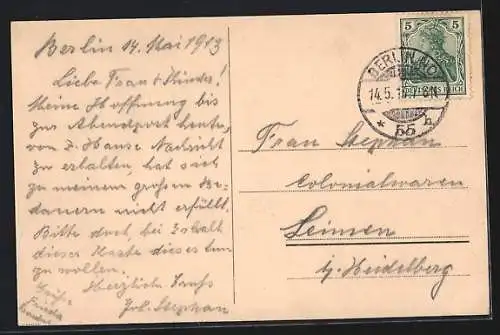 Berlin 14. Mai 1913
Liebe Frau + Kinder!
Meine Hoffnung bis
zur Abendpost heute,
von z. Hause Nachricht
zu erhalten, hat sich
zu meinem grossen Be-
dauern nicht erfüllt.
Bitte doch, bei Erhalt
dieser Karte dieses tun
zu wollen.
Herzliche Gruss
Joh. Stephan
Grüße
Frieda
5 5
DEUTSCHES REICH
BERLIN NO
14.5.13. 7-8N
* 55 h
Frau Stephan
Colonialwaren
Leimen
b/ Heidelberg